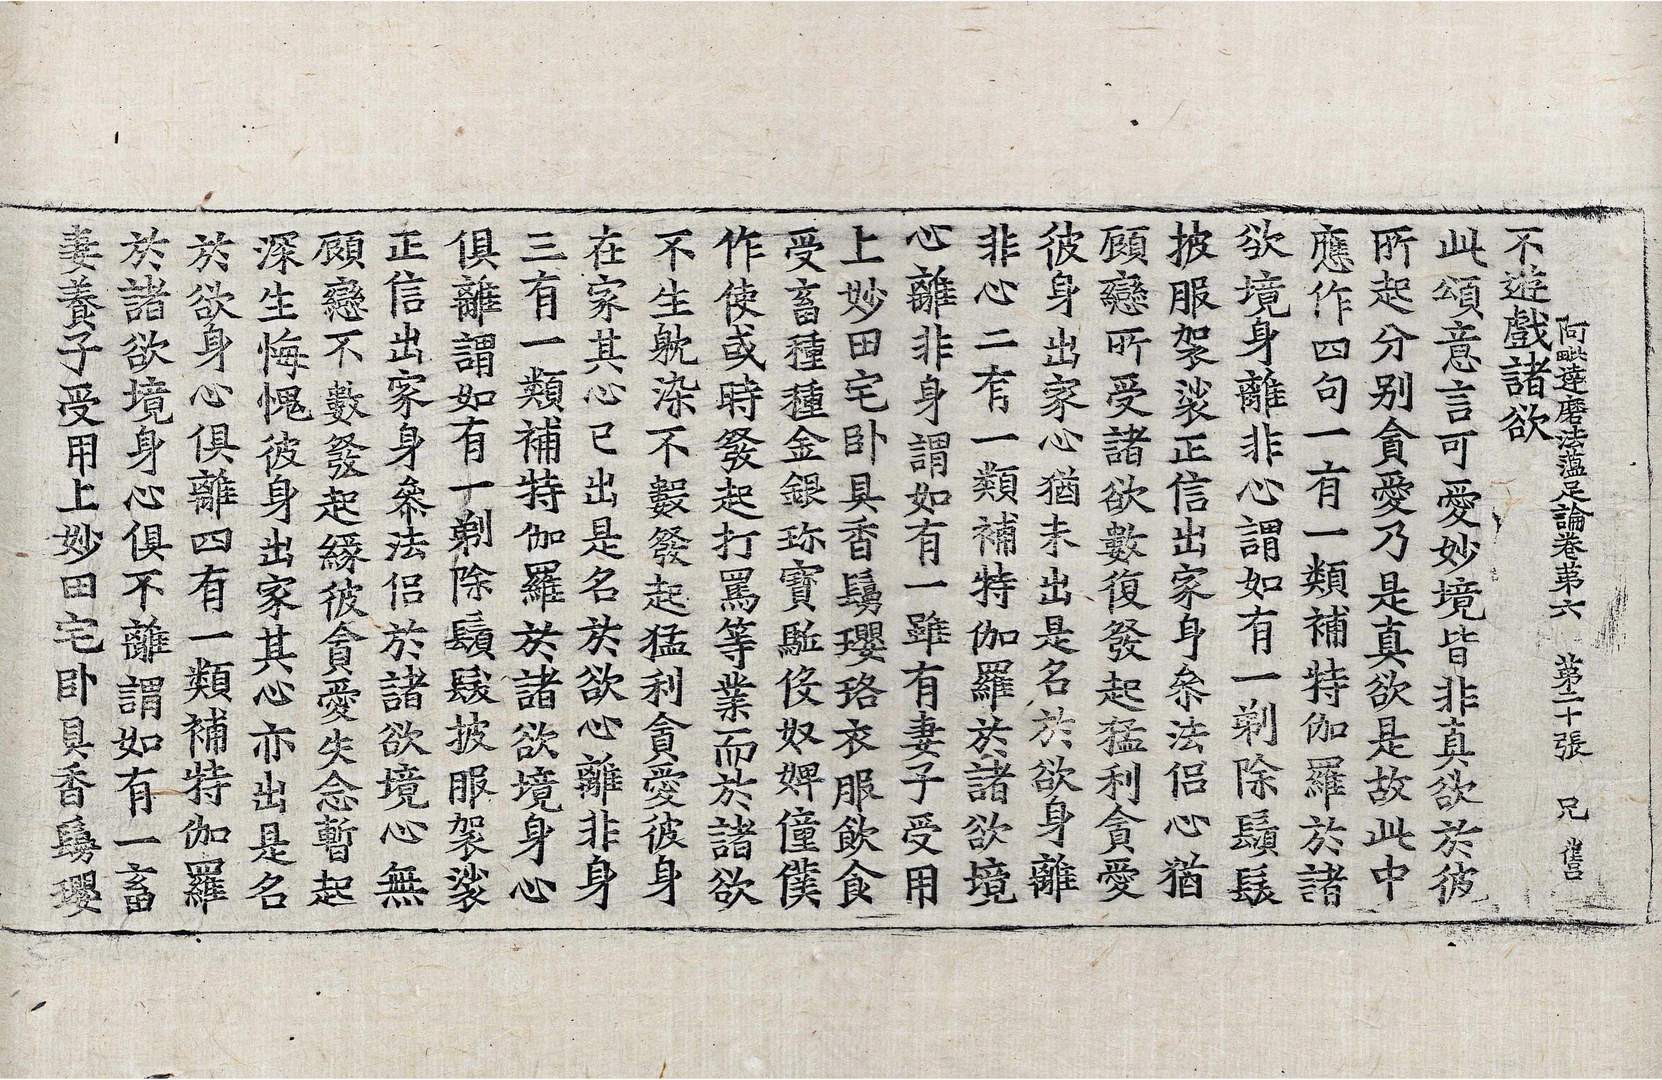 阿毗達磨法蘊足論卷第六 第二十張 兄 舊
不遊戲諸欲
此頌意言可愛妙境皆非真欲於彼
所起分别貪愛乃是真欲是故此中
應作四句一有一類補特伽羅於諸
欲境身離非心謂如有一剃除鬚髮
披服袈裟正信出家身叅法侣心猶
顧戀所受諸欲數復發起猛利貪愛
彼身出家心猶未出是名於欲身離
非心二有一類補特伽羅於諸欲境
心離非身謂如有一雖有妻子受用
上妙田宅卧具香鬘瓔珞衣服飲食
受畜種種金銀珎寶駈役奴婢僮僕
作使或時發起打罵等業而於諸欲
不生躭染不數發起猛利貪愛彼身
在家其心已出是名於欲心離非身
三有一類補特伽羅於諸欲境身心
俱離謂如有一剃除鬚髮披服袈裟
正信出家身叅法侣於諸欲境心無
顧戀不數發起緣彼貪愛失念暫起
深生悔愧彼身出家其心亦出是名
於欲身心俱離四有一類補特伽羅
於諸欲境身心俱不離謂如有一畜
妻養子受用上妙田宅卧具香鬘瓔